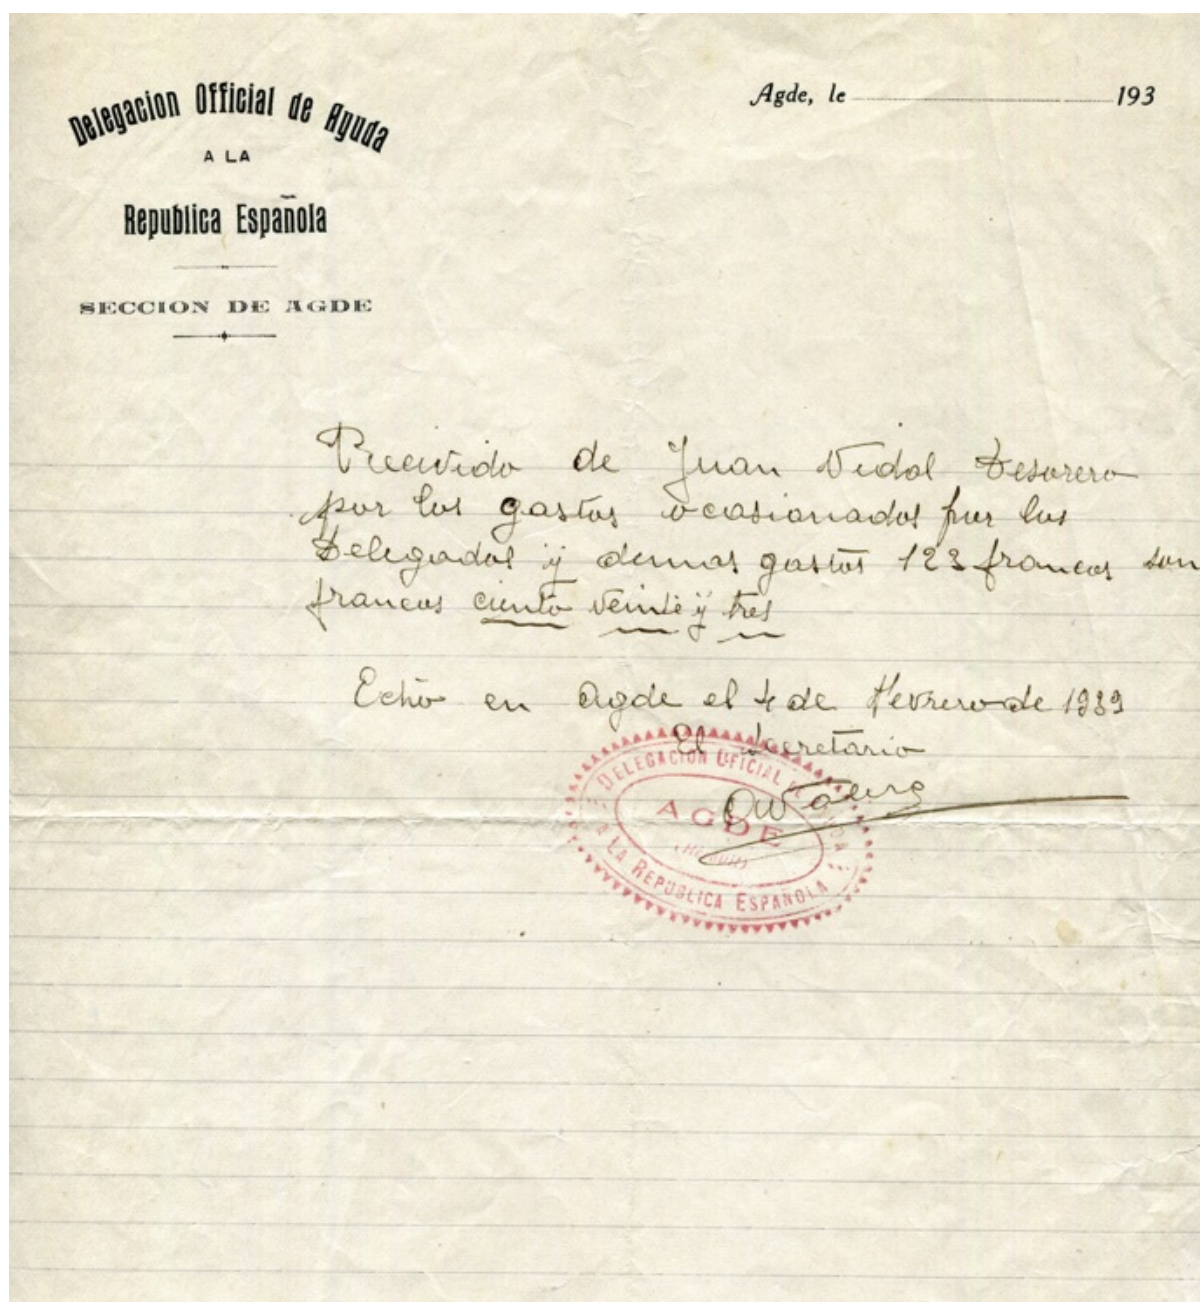 Delegacion Official de Ayuda
A LA
Republica Española
SECCION DE AGDE
Agde, le 193
Reccivido de Juan Vidal Tesorero
por los gastos ocasionados por los
Delegados y demas gastos 123 francos son
francos ciento veinte y tres
Echo en Agde el 4 de Fevrero de 1939
El Secretario
DELEGACION OFICIAL
AGDE
A LA REPUBLICA ESPAÑOLA